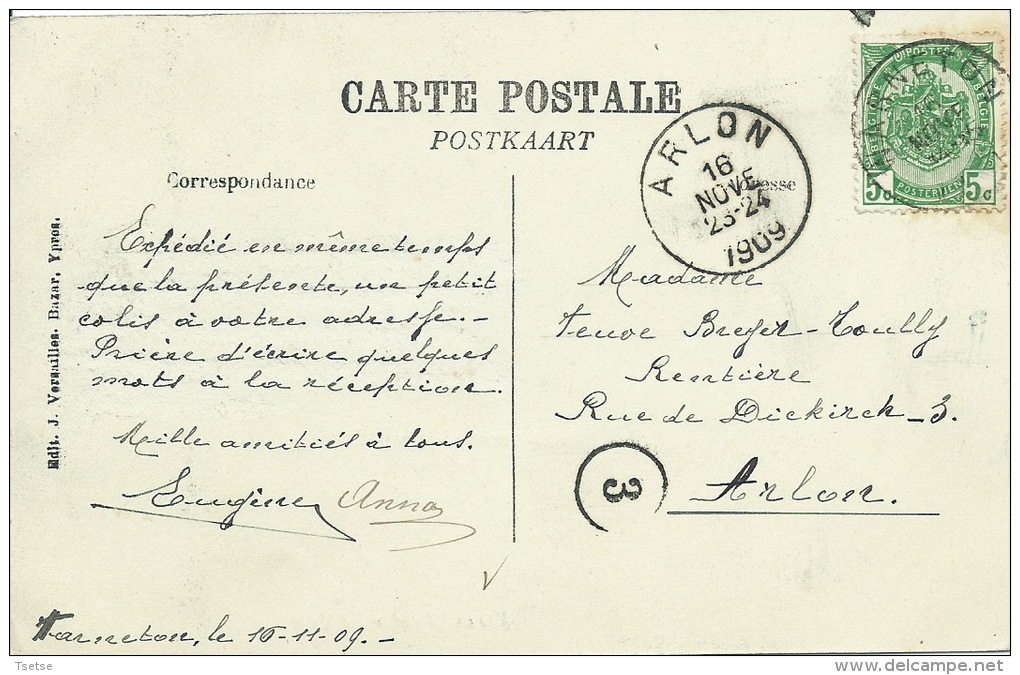 CARTE POSTALE
POSTKAART
Correspondance
Expédié en même temps
que la présente, un petit
colis à votre adresse.-
Prière d'écrire quelques
mots à la réception.
Mille amitiés à tous.
Eugène Anna
Warneton, le 16-11-09.-
Edit. J. Versailles. Bazar. Ypres.
ARLON
16
NOVE
23-24
1909
WARNETON
NOVE
POSTES
BELGIE
BELGIQUE
POSTERIJEN
5c 5c
Madame
Veuve Breyer-Toully
Rentière
Rue de Diekirch-3.
Arlon.
3
Tsetse
delcampe.net